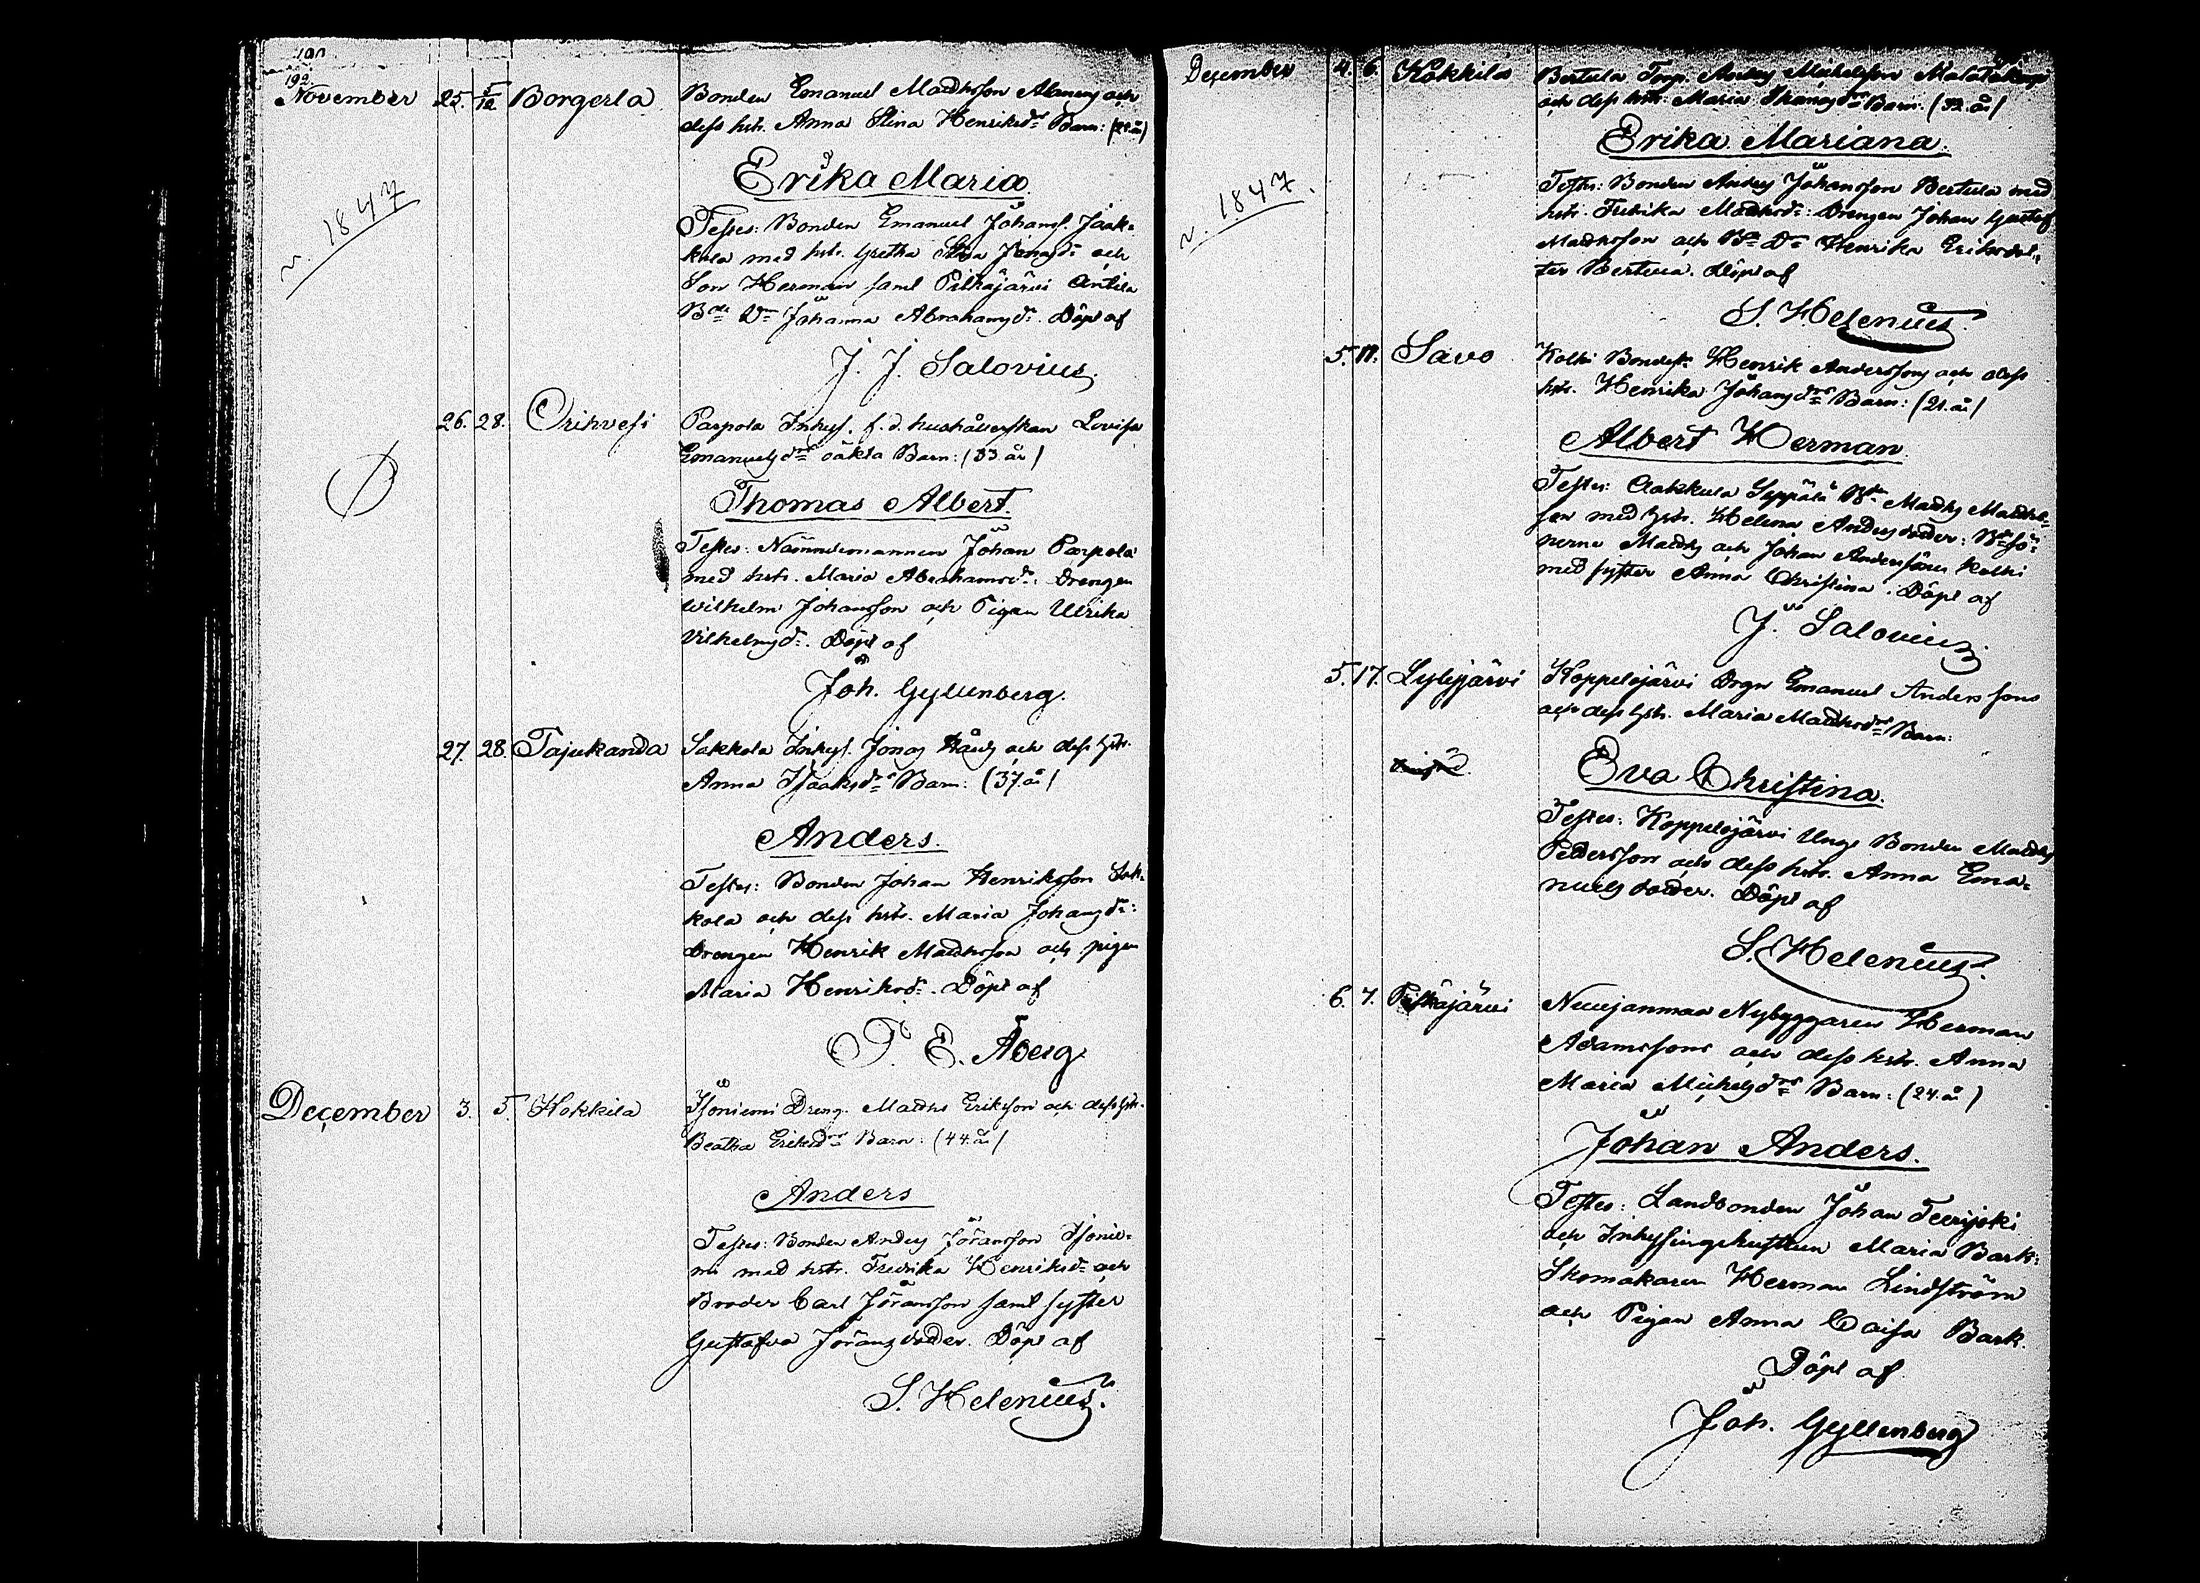 190
192.
November 25. 5/12 Borgerla Bonden Emanuel Madhsson Almens och
dess hstr. Anna Stina Henriksdrs Barn: (22 år)
Erika Maria
v. 1847
Testes: Bonden Emanuel Johanss. Jaak-
kola med hstr. Gretha Stina Jonasdr och
Son Herman samt Pitkäjärvi Antila
Bde Dr Johanna Abrahamsdr. Döpt af
J. J. Salovius.
26. 28. Orihvesi Parpola Inhys. f. d. hushållerskan Lovisa
Emanuelsdrs oäkta Barn: (33 år)
Thomas Albert.
Testes: Nämndemannen Johan Parpola
med hstr. Maria Abrahamsdr: Drengen
Wilhelm Johansson och Pigan Ulrika
Vilhelmsdr. Döpt af
Joh. Gyllenberg.
27. 28. Tajukanda Sakkola Inhys. Jonas och dess hstr.
Anna Isaaksdrs Barn: (37 år)
Anders.
Testes: Bonden Johan Henriksson Sak-
kola och dess hstr. Maria Johansdr:
Drengen Henrik Madhsson och pigan
Maria Henriksdr. Döpt af
E. Åberg
December 3. 5. Kokkila Isoniemi Dreng. Madhs Eriksson och dess hstr.
Beatha Eriksdrs Barn: (44 år)
Anders
Testes: Bonden Anders Jöransson Isonie-
mi med hstr. Fredrika Henriksdr och
Broder Carl Jöransson samt syster
Gustafva Jöransdoder. Döpt af
S. Helenius.
December 4. 6. Kokkila Bertula Torp. Anders Michelsson
och dess hstr. Maria Barn. (32 år)
Erika Mariana.
v. 1847.
Testes: Bonden Anders Johansson Bertula med
hstr. Fredrika Madhsdr: Drengen Johan Gustaf
Madhsson och Bde Dr Henrika Eriksdot-
ter Bertula. Döpt af
S. Helenius.
5. 11. Savo Kolhi Bondes. Henrik Anderssons och dess
hstr. Henrika Johansdrs Barn: (21 år)
Albert Herman
Testes: Aakkula Seppälä Bdn Madhs Madhs-
son med hstr. Helena Andersdoder: Bdesö-
nerne Madhs och Johan Anderssöner Kolhi
med syster Anna Christina. Döpt af
J. Salovius.
5. 17. Lyhyjärvi Koppelojärvi Drgn Emanuel Anderssons
och dess hstr. Maria Madhsdrs Barn:
Eva Christina.
Testes: Koppelojärvi Unge Bonden Madhs
Pedersson och dess hstr. Anna Ema-
nuelsdoder. Döpt af
S. Helenius.
6. 7. Pitkäjärvi Nuujanmaa Nybyggaren Herman
Adamssons och dess hstr. Anna
Maria Michelsdrs Barn: (24 år)
Johan Anders.
Testes: Landbonden Johan Teerijoki
och Inhysingehustrun Maria Bark:
Skomakaren Herman Lindström
och Pigan Anna Caisa Bark.
Döpt af
Joh. Gyllenberg